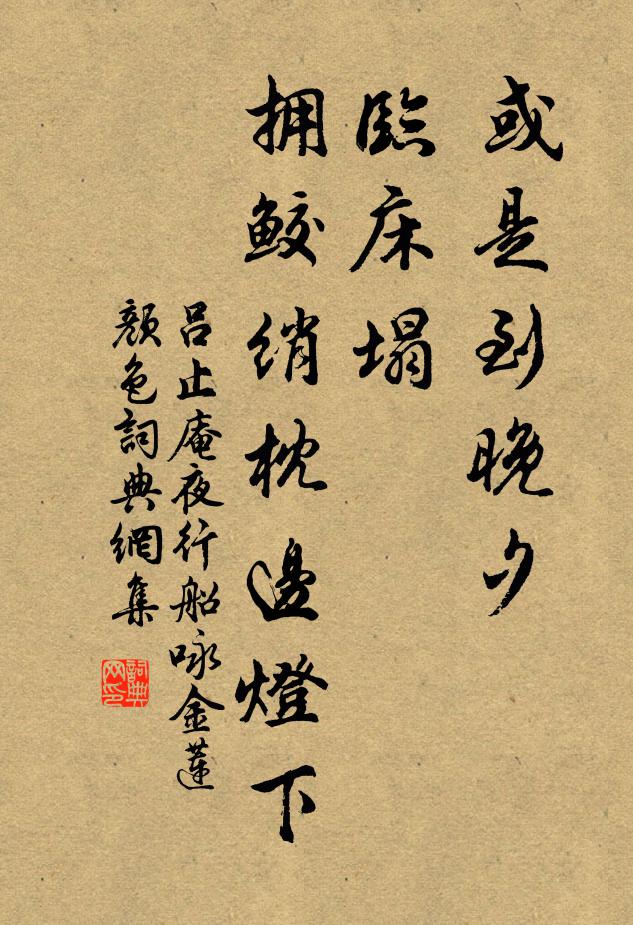 或是到晚夕
臨床塌
拥鮫绡枕邊燈下
吕止庵夜行船咏金蓮
顏色詞典網集
詞典网印